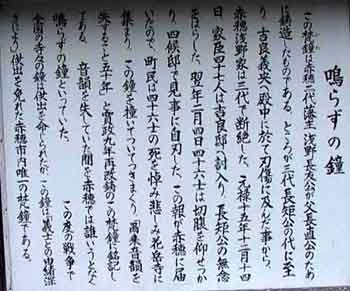 鳴らずの鐘
この梵鐘は赤穂二代藩主 浅野長友公が父長直公のため
に鋳造したものである。ところが三代長矩公の代に至
り 吉良義央へ殿中に於て刃傷に及んだ事から、
赤穂浅野家は三代で断絶した。元禄十五年十二月十四
日 家臣四十七人は吉良邸へ討入り 長矩公の無念
をはらした。翌年二月四日四十六士は切腹を仰せつか
り 四候邸で見事に自刃した。この報が赤穂に届
いたので、町民は四十六士の死を悼み悲しみ花岳寺に
集まり、この鐘を撞いてつきまくり、爾来音韻を
失すること五十年 と寛政九年再改鋳のこの梵鐘に銘記し
てある。 音韻を失していた間を赤穂では誰いうとなく
鳴らずの鐘といっていた。 この度の戦争で
全国の寺々の鐘は供出を命じられたが、この鐘は義士との由緒深
きにより 供出を免れた赤穂市内唯一の梵鐘である。